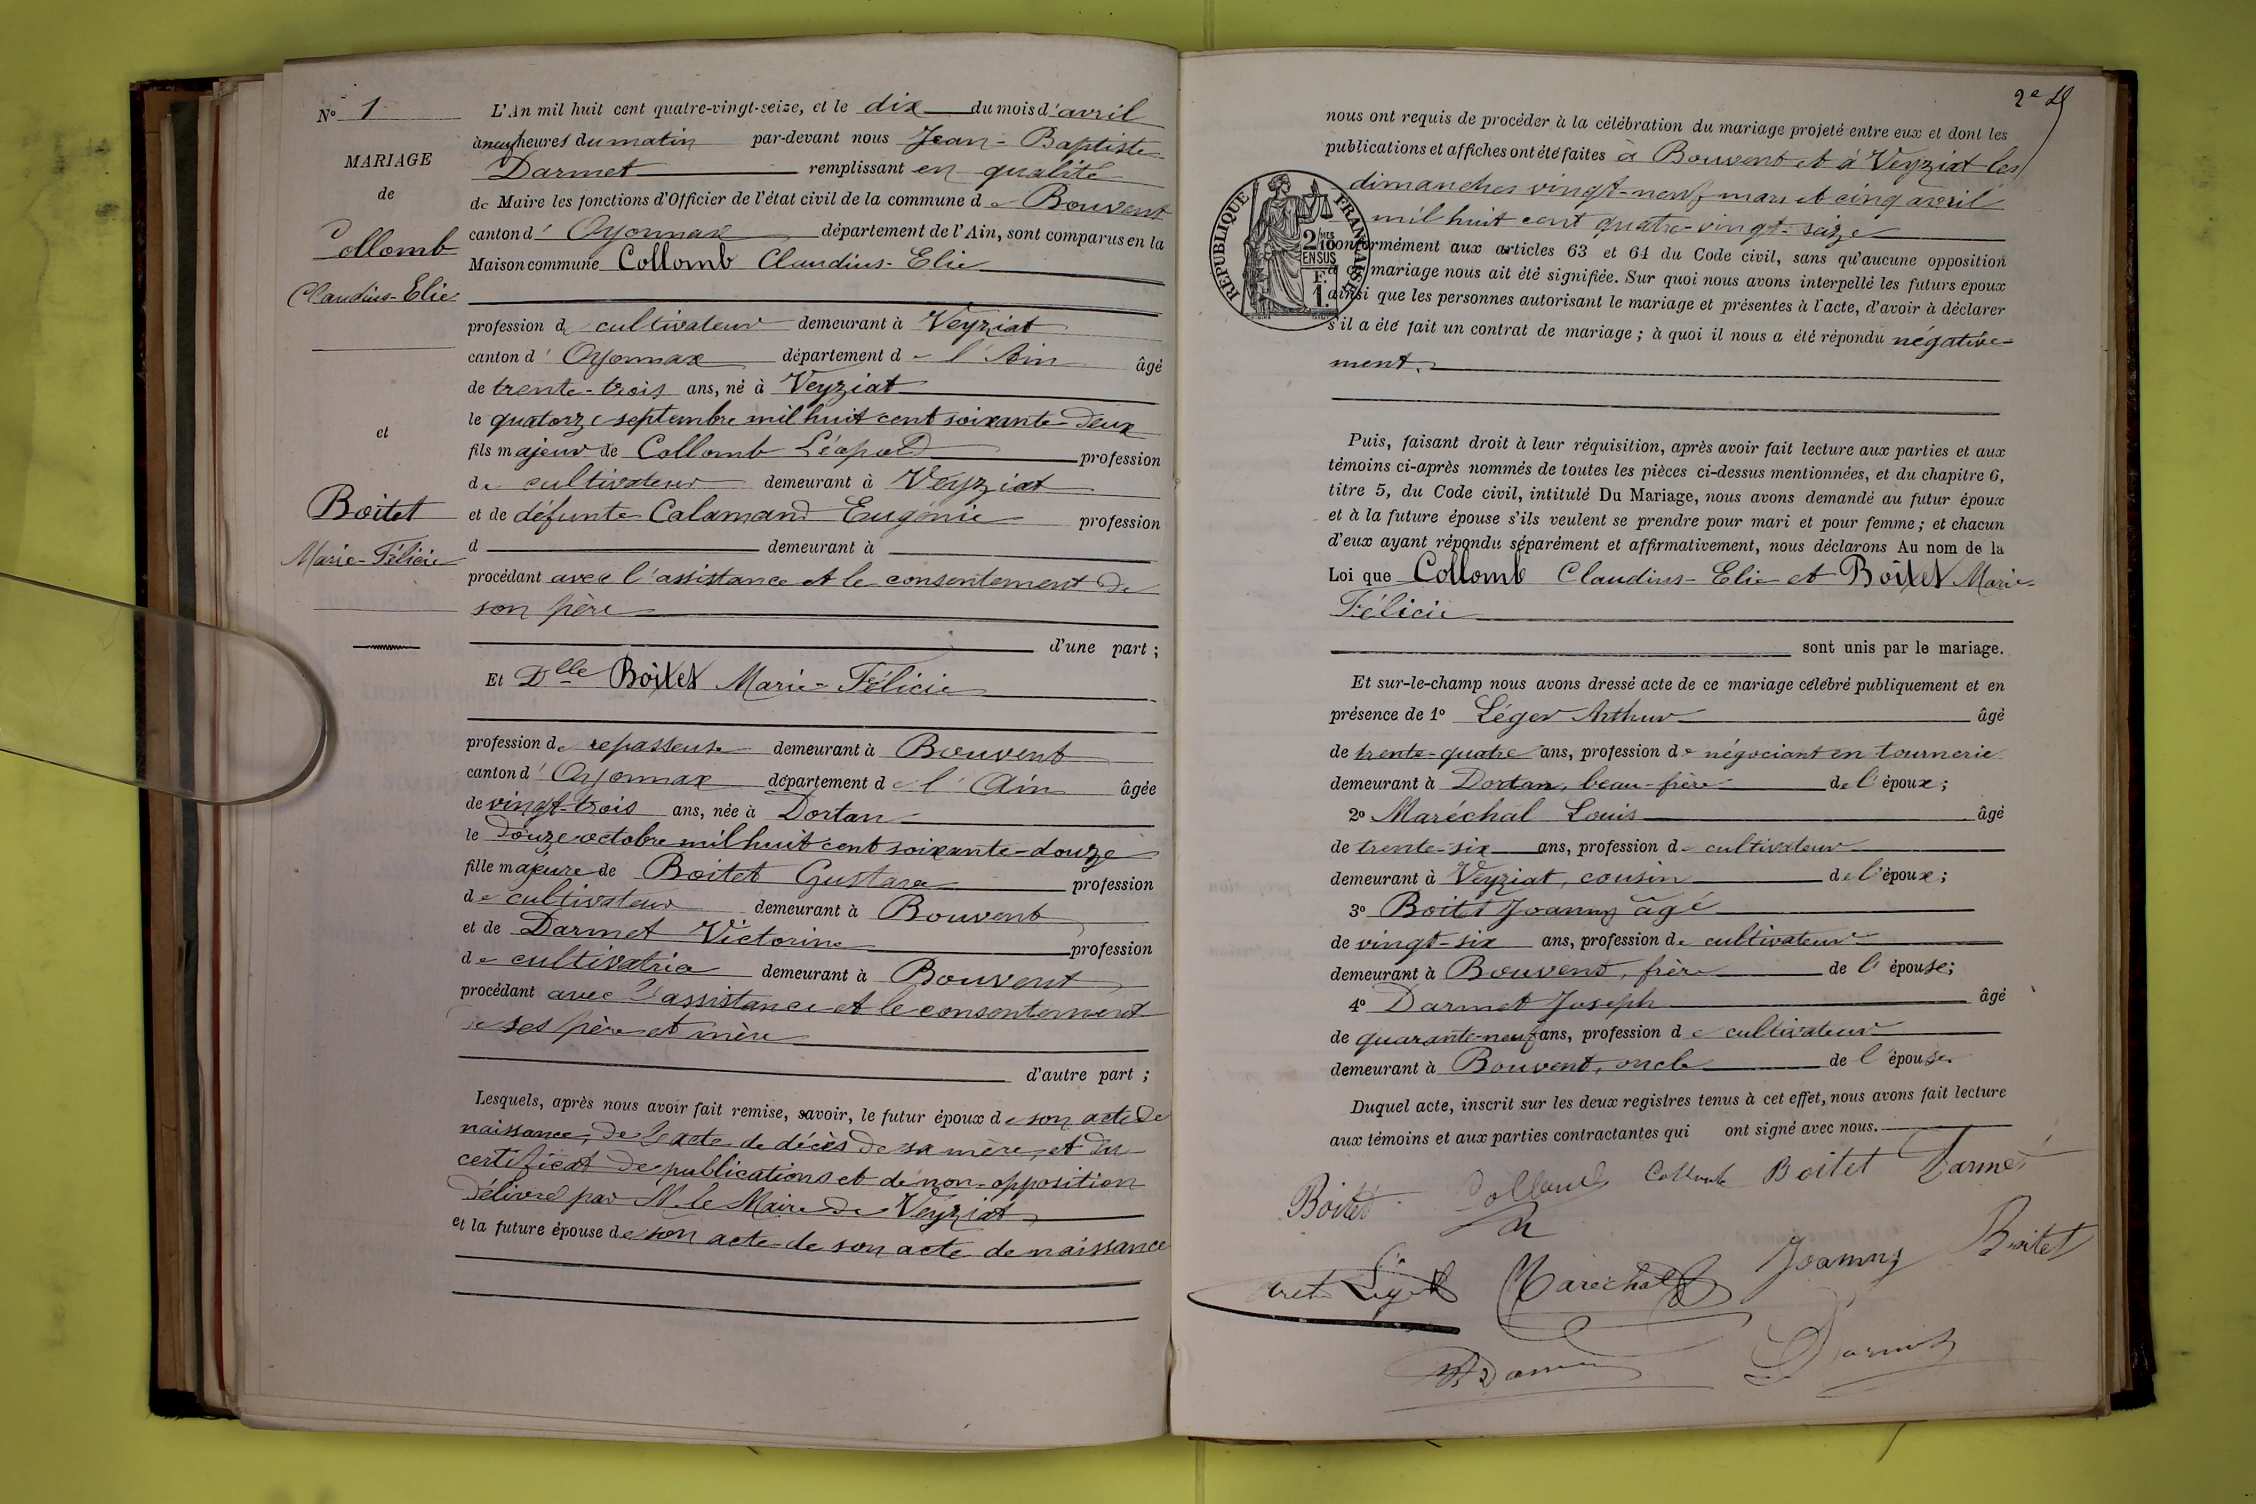 N° 1
MARIAGE
de
Collomb
Claudius-Elie
et
Boitet
Marie-Félicie
L'An mil huit cent quatre-vingt-seize, et le dix du mois d'avril
à neuf heures du matin par-devant nous Jean-Baptiste
Darmet remplissant en qualité
de Maire les fonctions d'Officier de l'état civil de la commune de Bouvent
canton d'Oyonnax département de l'Ain, sont comparus en la
Maison commune Collomb Claudius-Elie
profession de cultivateur demeurant à Veyziat
canton d'Oyonnax département de l'Ain âgé
de trente-trois ans, né à Veyziat
le quatorze septembre mil huit cent soixante-deux
fils majeur de Collomb Léopold profession
de cultivateur demeurant à Veyziat
et de défunte Calamand Eugénie profession
d demeurant à
procédant avec l'assistance et le consentement de
son père
d'une part ;
Et Dlle Boitet Marie-Félicie
profession de repasseuse demeurant à Bouvent
canton d'Oyonnax département de l'Ain âgée
de vingt-trois ans, née à Dortan
le douze octobre mil huit cent soixante-douze
fille majeure de Boitet Gustave profession
de cultivateur demeurant à Bouvent
et de Darmet Victorine profession
de cultivatrice demeurant à Bouvent
procédant avec l'assistance et le consentement
de ses père et mère
d'autre part ;
Lesquels, après nous avoir fait remise, savoir, le futur époux de son acte de
naissance, de l'acte de décès de sa mère, et du
certificat de publications et de non-opposition
délivré par M. le Maire de Veyziat
et la future épouse de son acte de son acte de naissance
2e
nous ont requis de procéder à la célébration du mariage projeté entre eux et dont les
publications et affiches ont été faites à Bouvent et à Veyziat les
dimanches vingt-neuf mars et cinq avril
mil huit cent quatre-vingt-seize
RÉPUBLIQUE FRANÇAISE
2/10MES
EN SUS
1 F.
conformément aux articles 63 et 64 du Code civil, sans qu'aucune opposition
au dit mariage nous ait été signifiée. Sur quoi nous avons interpellé les futurs époux
ainsi que les personnes autorisant le mariage et présentes à l'acte, d'avoir à déclarer
s'il a été fait un contrat de mariage ; à quoi il nous a été répondu négative-
ment.
Puis, faisant droit à leur réquisition, après avoir fait lecture aux parties et aux
témoins ci-après nommés de toutes les pièces ci-dessus mentionnées, et du chapitre 6,
titre 5, du Code civil, intitulé Du Mariage, nous avons demandé au futur époux
et à la future épouse s'ils veulent se prendre pour mari et pour femme ; et chacun
d'eux ayant répondu séparément et affirmativement, nous déclarons Au nom de la
Loi que Collomb Claudius-Elie et Boitet Marie-
Félicie
sont unis par le mariage.
Et sur-le-champ nous avons dressé acte de ce mariage célébré publiquement et en
présence de 1° Léger Arthur âgé
de trente-quatre ans, profession de négociant en tournerie
demeurant à Dortan, beau-frère de l'époux ;
2° Maréchal Louis âgé
de trente-six ans, profession de cultivateur
demeurant à Veyziat, cousin de l'époux ;
3° Boitet Joanny âgé
de vingt-six ans, profession de cultivateur
demeurant à Bouvent, frère de l'épouse ;
4° Darmet Joseph âgé
de quarante-neuf ans, profession de cultivateur
demeurant à Bouvent, oncle de l'épouse
Duquel acte, inscrit sur les deux registres tenus à cet effet, nous avons fait lecture
aux témoins et aux parties contractantes qui ont signé avec nous.
Boitet Collomb Collomb Boitet Darmet
Léger Maréchal Joanny Boitet
Darmet Darmet